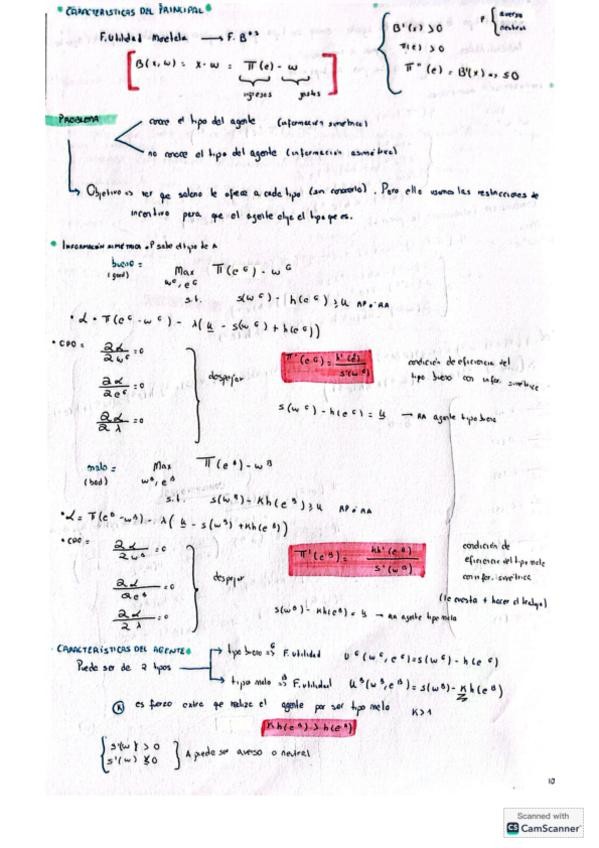 • CARACTERISTICAS DEL PRINCIPAL •
P. { averso
neutral
F. Utilidad → F. Bº⁵
B'(x) > 0
B(x,w) = x - w = Π(e) - w
ingresos gastos
Π''(e) = B''(x) => ≤0
PROBLEMA
conoce el tipo del agente (información simétrica)
no conoce el tipo del agente (información asimétrica)
Objetivo => ver que salario le ofrece a cada tipo (sin conocerlo). Para ello usamos las restricciones de
incentivo para que el agente elija el tipo que es.
• INFORMACIÓN SIMÉTRICA => P sabe el tipo de A
bueno =
(good)
Max Π(e^G) - w^G
w^G, e^G
s.t. s(w^G) - h(e^G) ≥ u RP o RA
• L = Π(e^G - w^G) - λ(u - s(w^G) + h(e^G))
• CPO =
∂L/∂w^G = 0
∂L/∂e^G = 0
∂L/∂λ = 0
despejar
Π'(e^G) = h'(e)/s'(w^G)
condición de eficiencia del
tipo bueno con infor. simétrica
s(w^G) - h(e^G) = u → RA agente tipo bueno
malo =
(bad)
Max Π(e^B) - w^B
w^B, e^B
s.t. s(w^B) - Kh(e^B) ≥ u RP o RA
• L = Π(e^B - w^B) - λ(u - s(w^B) + Kh(e^B))
• CPO =
∂L/∂w^B = 0
∂L/∂e^B = 0
∂L/∂λ = 0
despejar
Π'(e^B) = Kh'(e^B)/s'(w^B)
condición de
eficiencia del tipo malo
con infor. simétrica
(le cuesta + hacer el trabajo)
s(w^B) - Kh(e^B) = u → RA agente tipo malo
CARACTERÍSTICAS DEL AGENTE •
Puede ser de 2 tipos
tipo bueno =>^G F. utilidad U^G(w^G, e^G) = s(w^G) - h(e^G)
tipo malo =>^B F. utilidad U^B(w^B, e^B) = s(w^B) - Kh(e^B)
(K) esfuerzo extra que realiza el agente por ser tipo malo K>1
Kh(e^B) > h(e^B)
s'(w) > 0
A puede ser averso o neutral
10
Scanned with
CS CamScanner